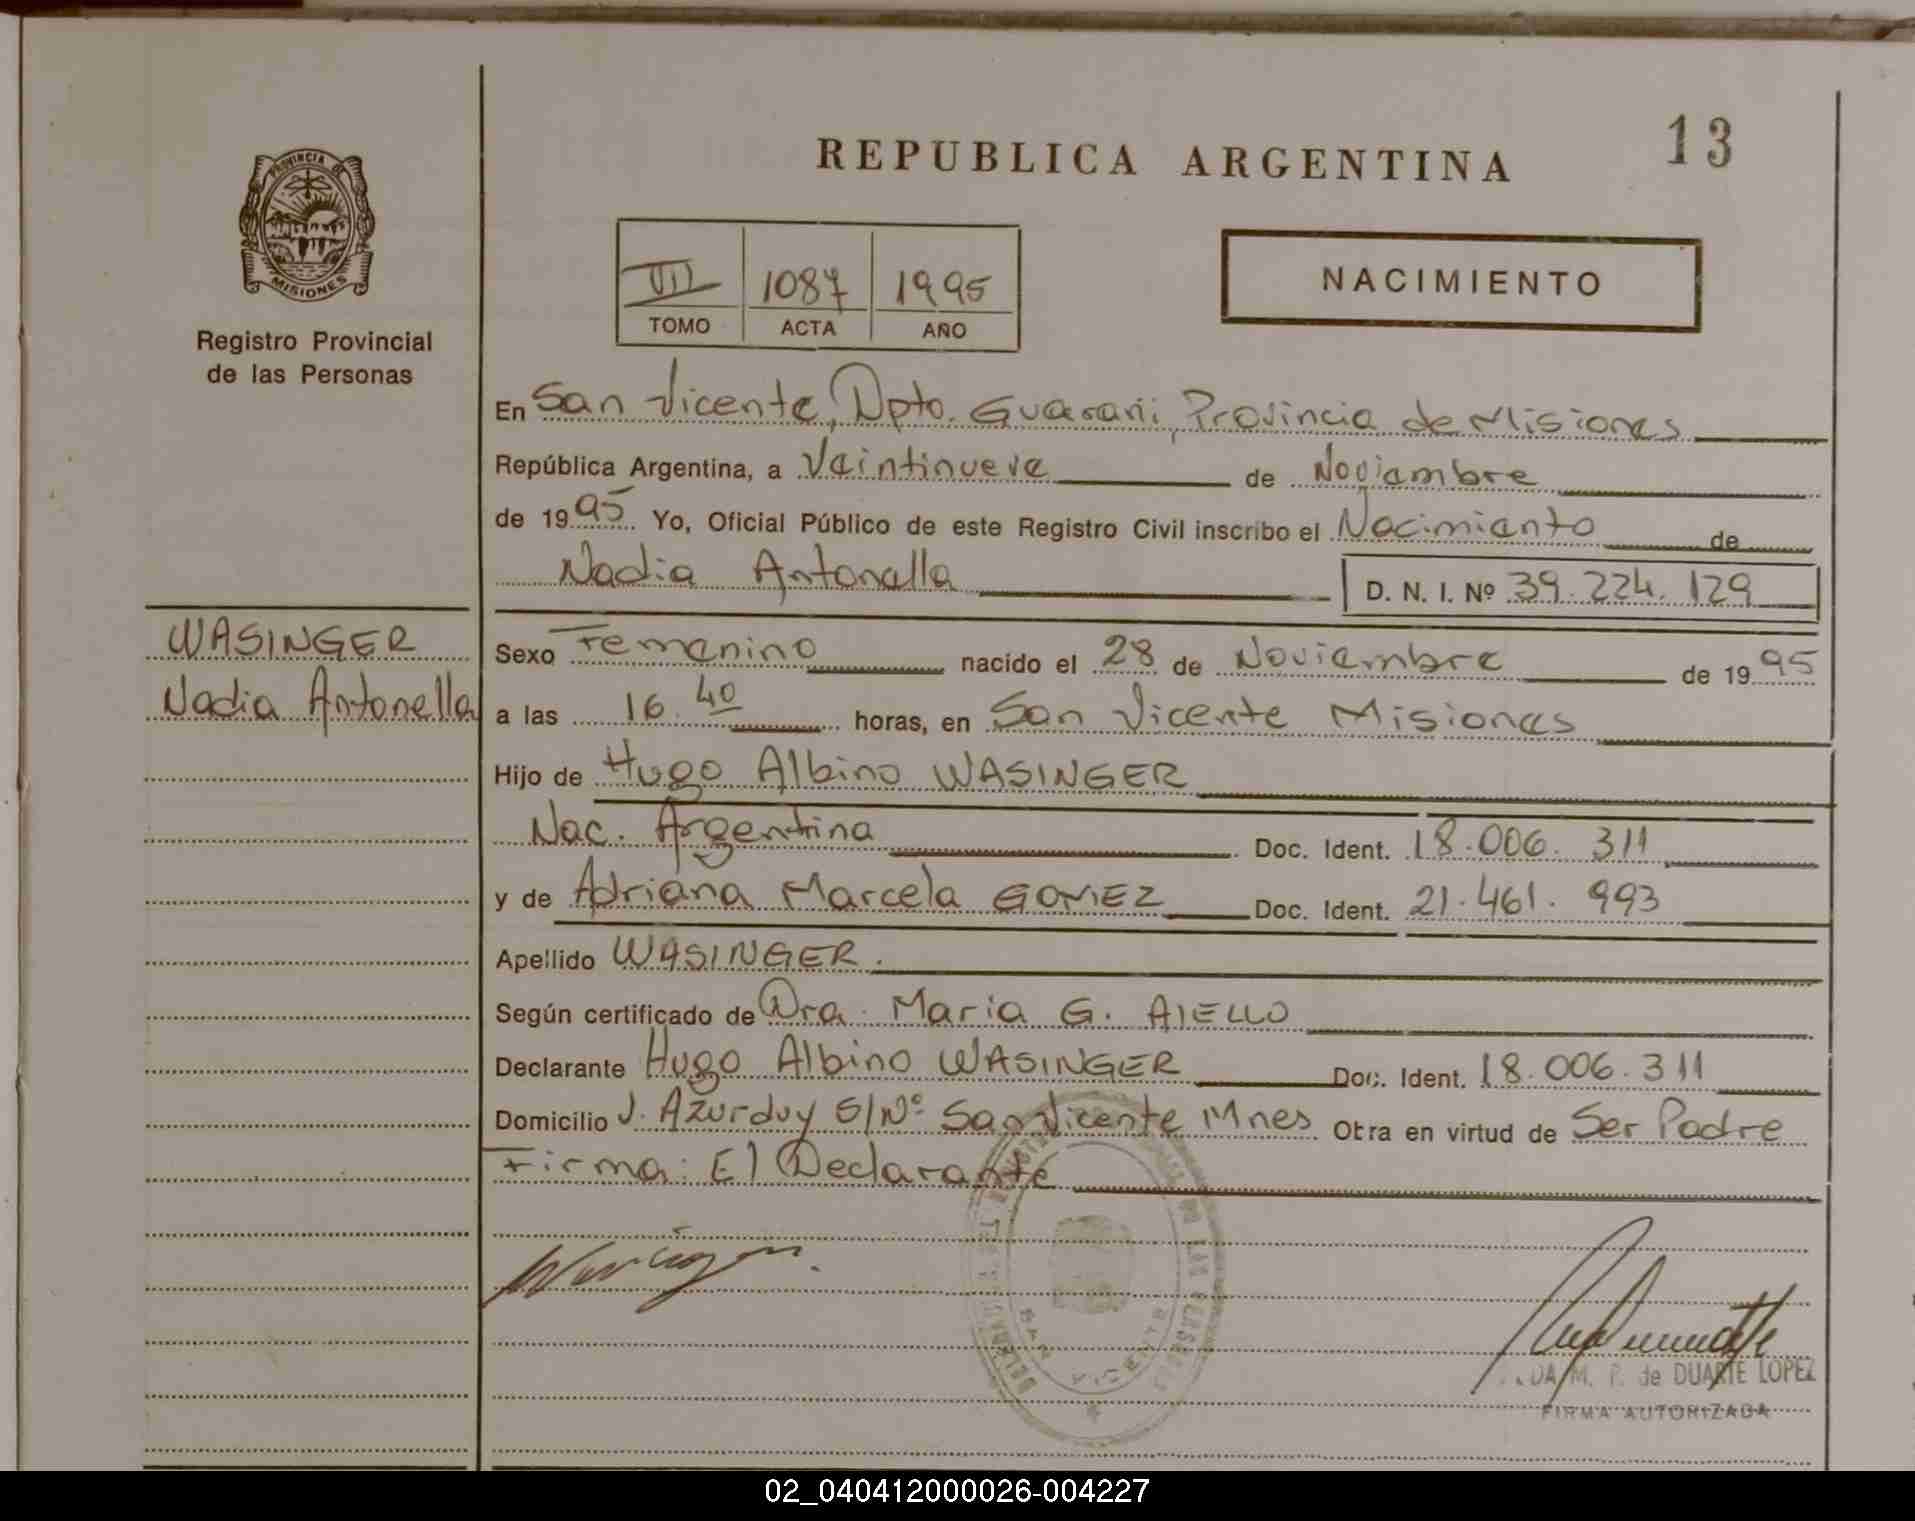 13
REPUBLICA ARGENTINA
PROVINCIA DE
MISIONES
Registro Provincial
de las Personas
VII 1087 1995
TOMO ACTA AÑO
NACIMIENTO
En San Vicente, Dpto. Guarani, Provincia de Misiones
República Argentina, a Veintinueve de Noviembre
de 1995 Yo, Oficial Público de este Registro Civil inscribo el Nacimiento de
Nadia Antonella D. N. I. Nº 39.224.129
WASINGER
Nadia Antonella
Sexo Femenino nacido el 28 de Noviembre de 1995
a las 16.40 horas, en San Vicente Misiones
Hijo de Hugo Albino WASINGER
Nac. Argentina Doc. Ident. 18.006.311
y de Adriana Marcela GOMEZ Doc. Ident. 21.461.993
Apellido WASINGER.
Según certificado de Dra. Maria G. AIELLO
Declarante Hugo Albino WASINGER Doc. Ident. 18.006.311
Domicilio J. Azurduy S/Nº San Vicente Mnes Obra en virtud de Ser Padre
Firma: El Declarante
SAN VICENTE
DA M. P. de DUARTE LOPEZ
FIRMA AUTORIZADA
02_040412000026-004227